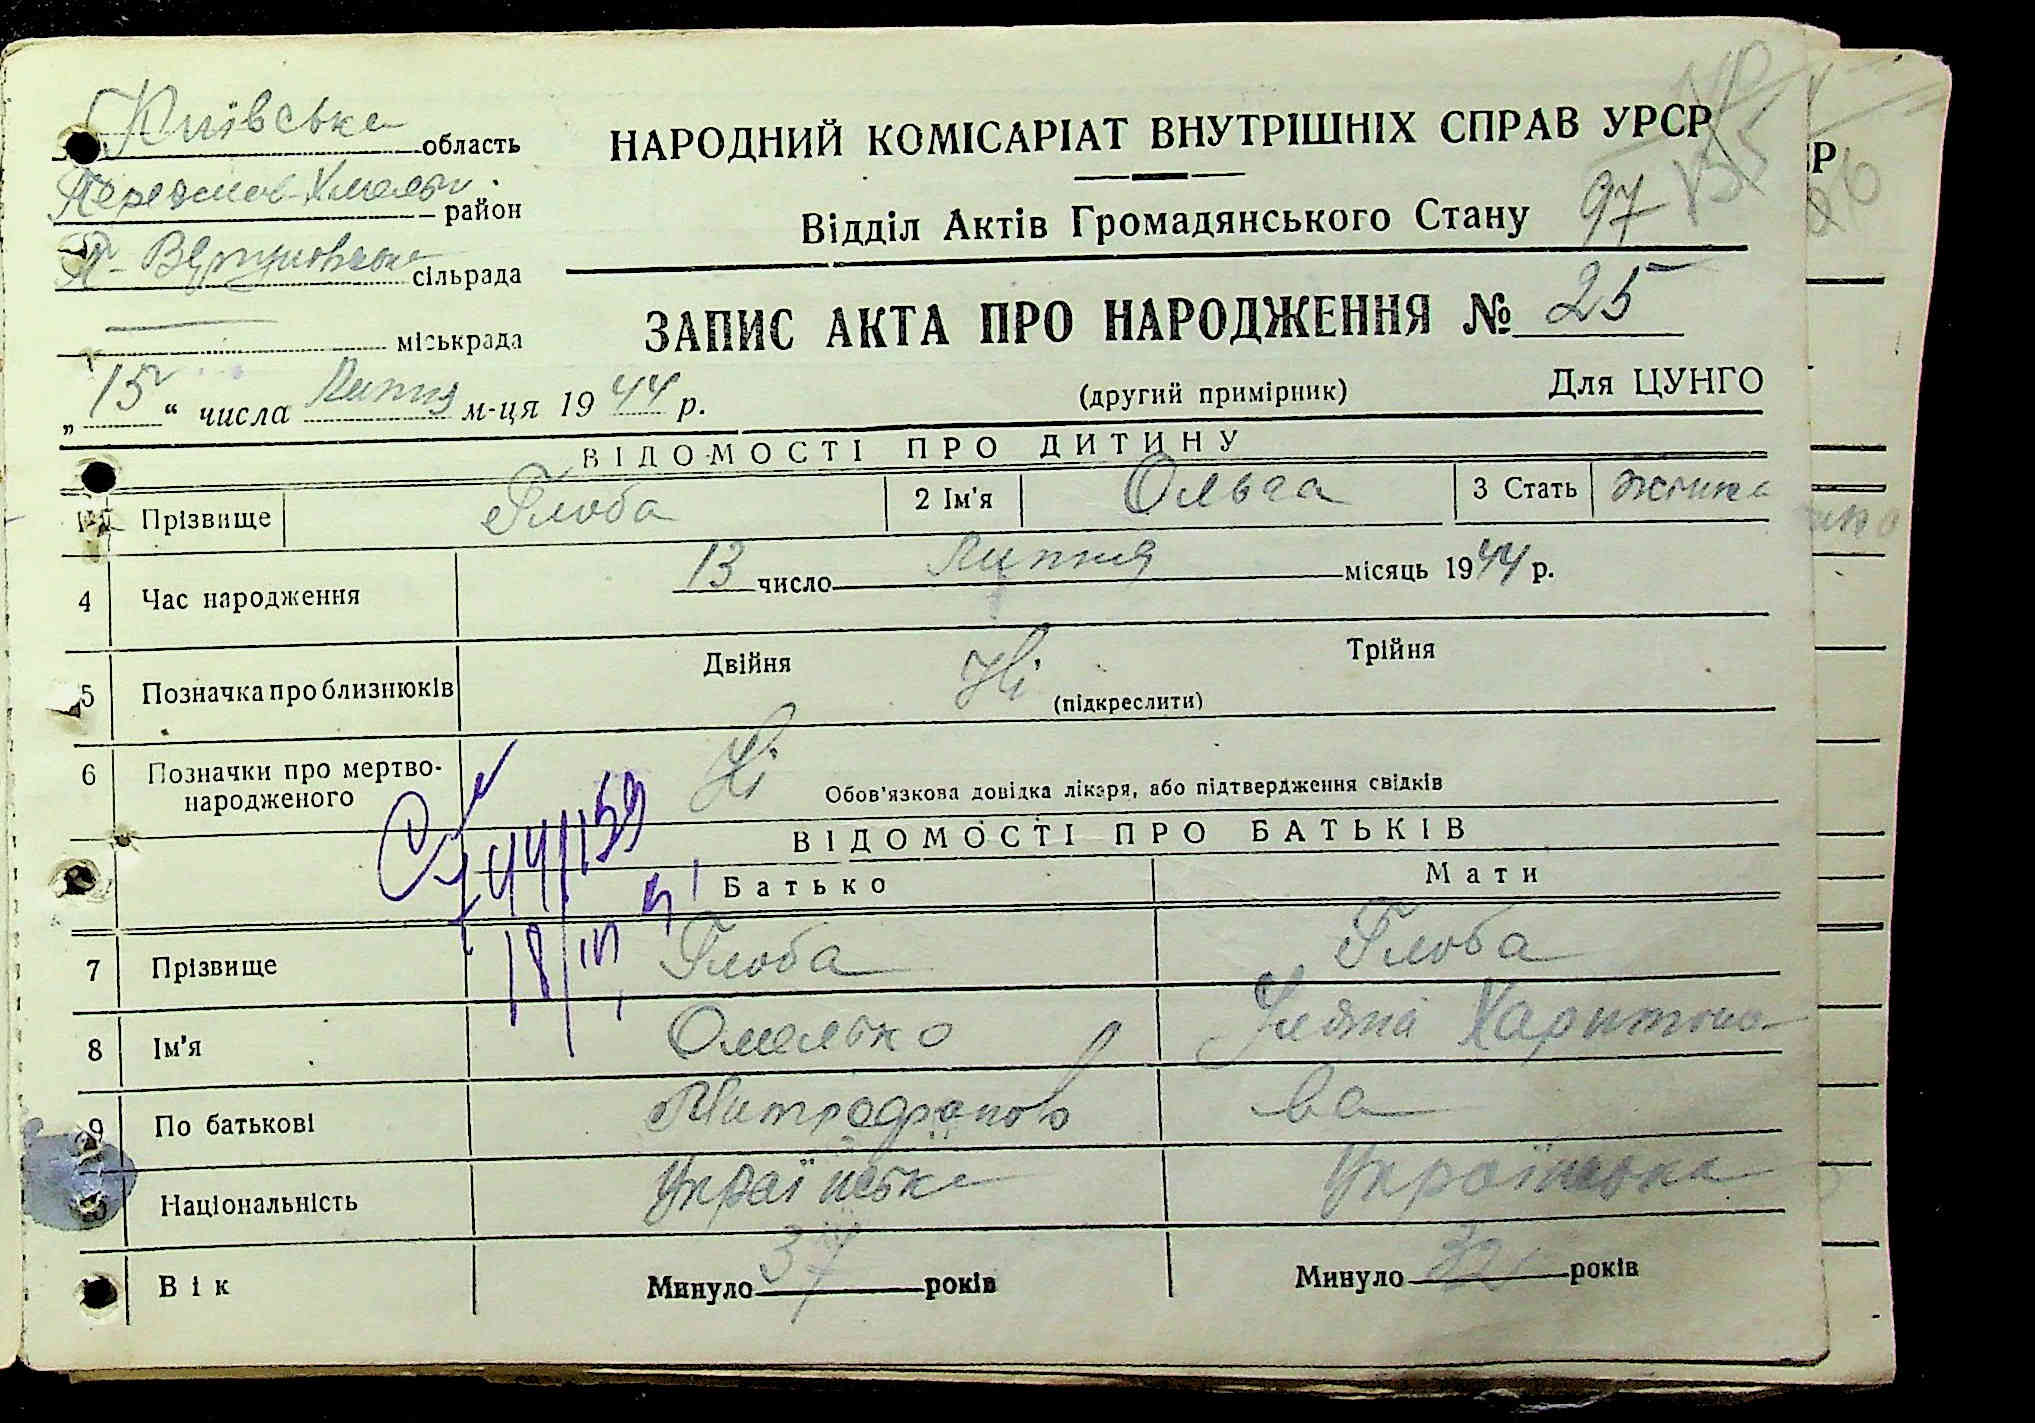 Київська область
НАРОДНИЙ КОМІСАРІАТ ВНУТРІШНІХ СПРАВ УРСР
Переяслов-Хмельн. район
Відділ Актів Громадянського Стану 97
сільрада
ЗАПИС АКТА ПРО НАРОДЖЕННЯ № 25
міськрада
„15“ числа Липня м-ця 1944 р.
(другий примірник) Для ЦУНГО
ВІДОМОСТІ ПРО ДИТИНУ
Прізвище Глоба 2 Ім'я Ольга 3 Стать жіноча
4 Час народження 13 число Липня місяць 1944 р.
Двійня Ні Трійня
5 Позначка про близнюків (підкреслити)
6 Позначки про мертво-
народженого Ні Обов'язкова довідка лікаря, або підтвердження свідків
ВІДОМОСТІ ПРО БАТЬКІВ
Батько Мати
7 Прізвище Глоба Глоба
8 Ім'я Омелько Харитоно-
9 По батькові Митрофанов ва
Національність Українська Українська
Вік Минуло 37 років Минуло 32 років